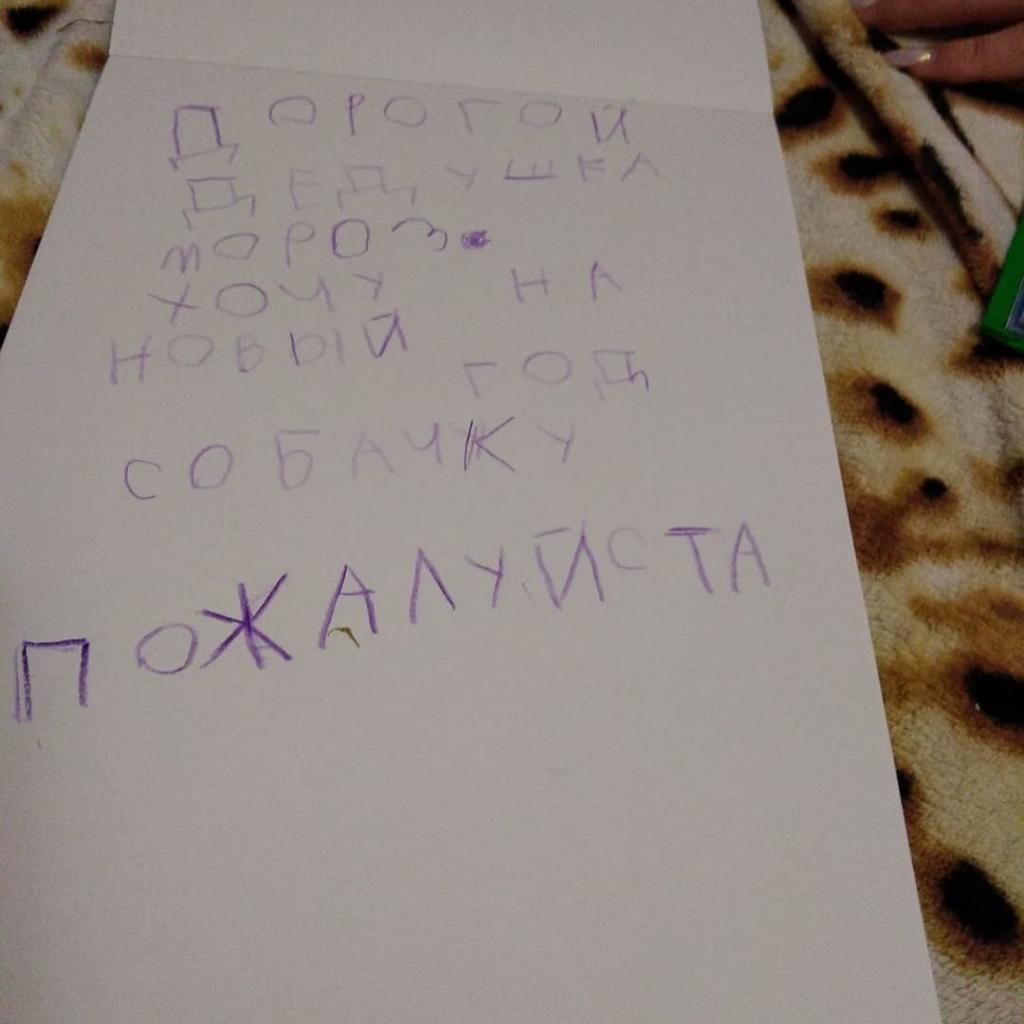 ДОРОГОЙ
ДЕДУШКА
МОРОЗ.
ХОЧУ НА
НОВЫЙ ГОД
СОБАЧКУ
ПОЖАЛУЙСТА